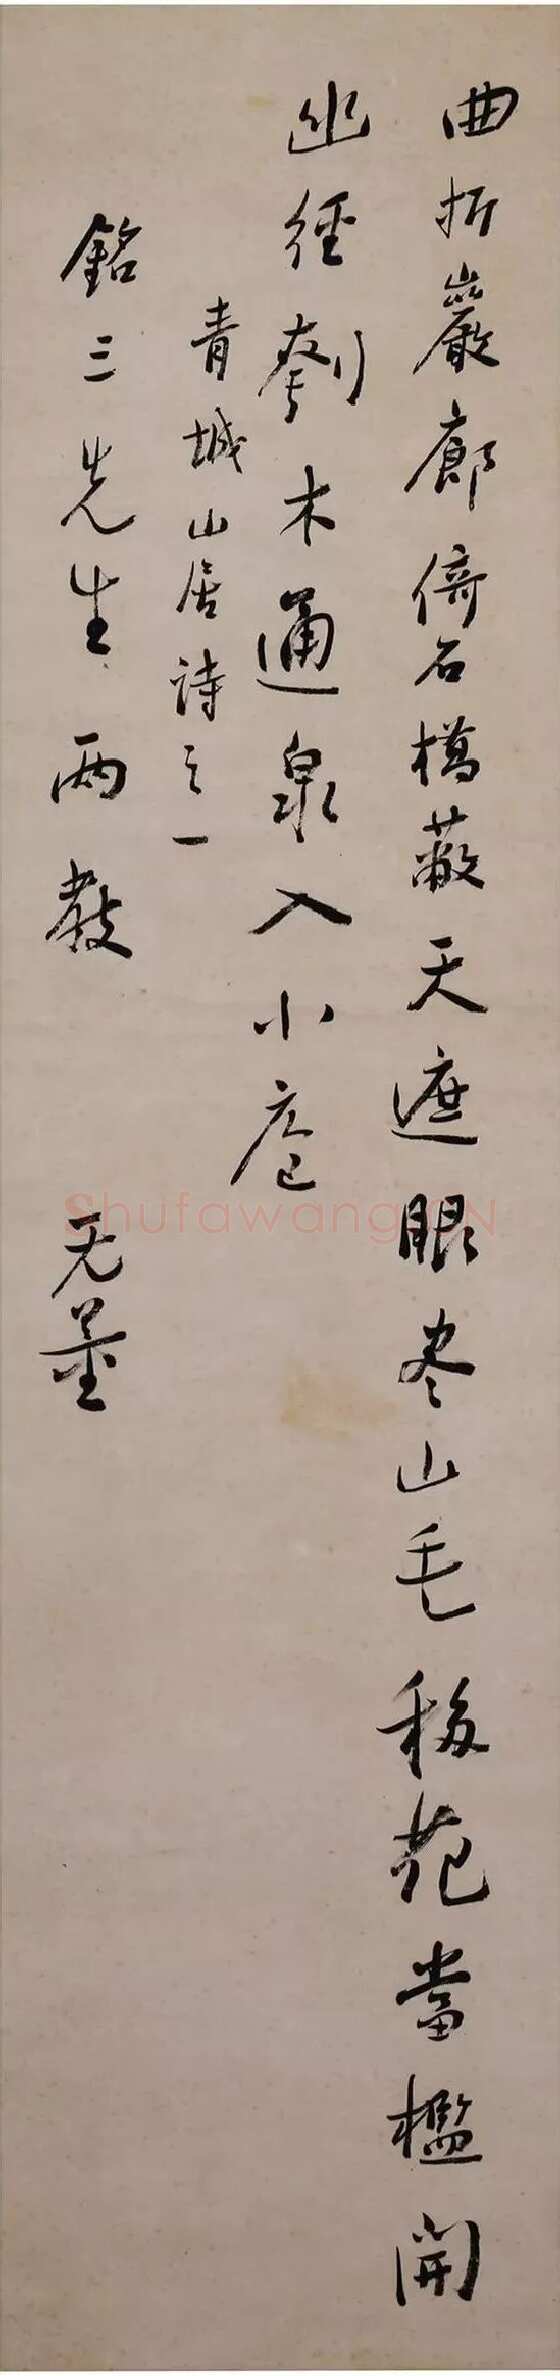 曲折巖廊倚石橋蔽天遮眼盡山毛移花當檻開
幽徑刳木通泉入小庖
青城山居詩之一
銘三先生兩教
无量
Shufawang.CN